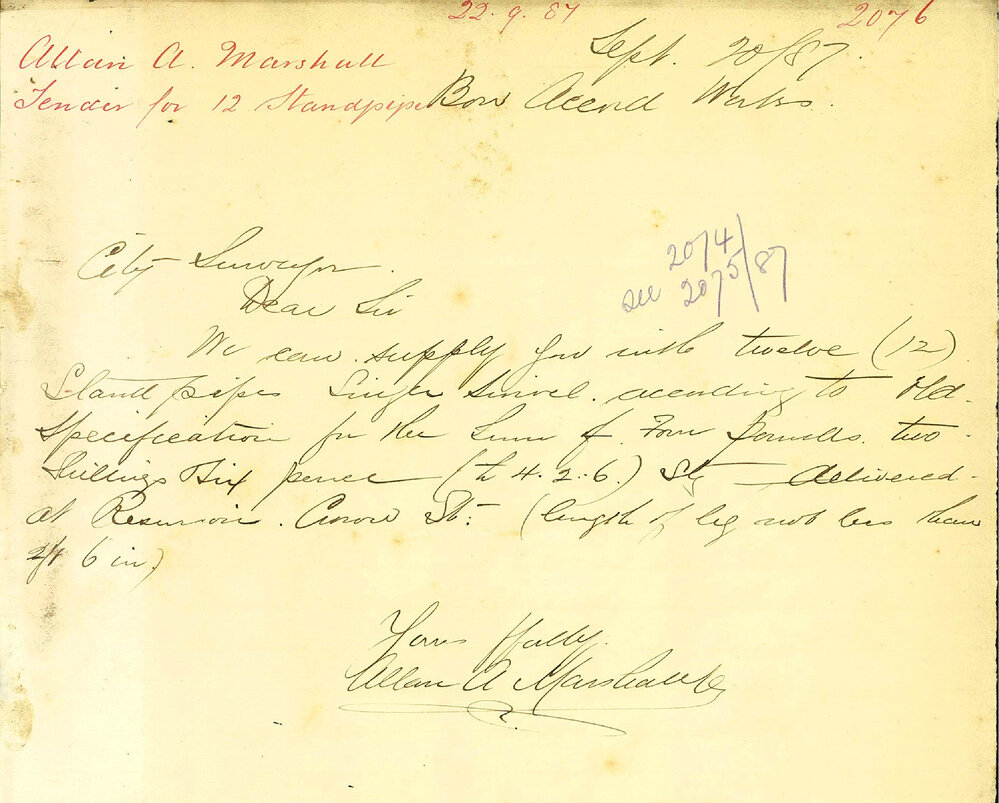 22.9.87
2076
Allan A. Marshall
Tender for 12 Standpipes
Sept. 20/87.
Bon Accord Works.
2074
see 2075/87
City Surveyor.
Dear Sir
We can supply you with twelve (12)
Standpipes Single Swivel according to Old
Specification for the Sum of Four pounds two
Shillings Six pence (£4.2.6.) delivered
at Reservoir. Crown St: (length of leg not less than
2ft 6 in)
Yours ffully.
Allan A Marshall & Co